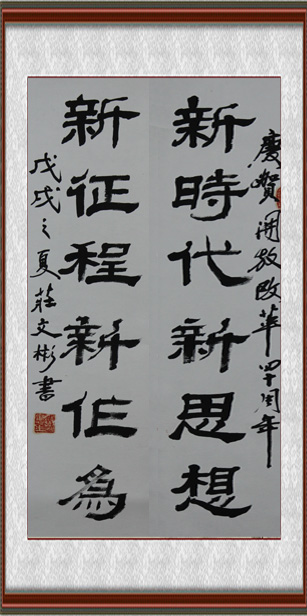 慶賀開放改革四十周年
新時代新思想
新征程新作為
戊戌之夏莊文彬書